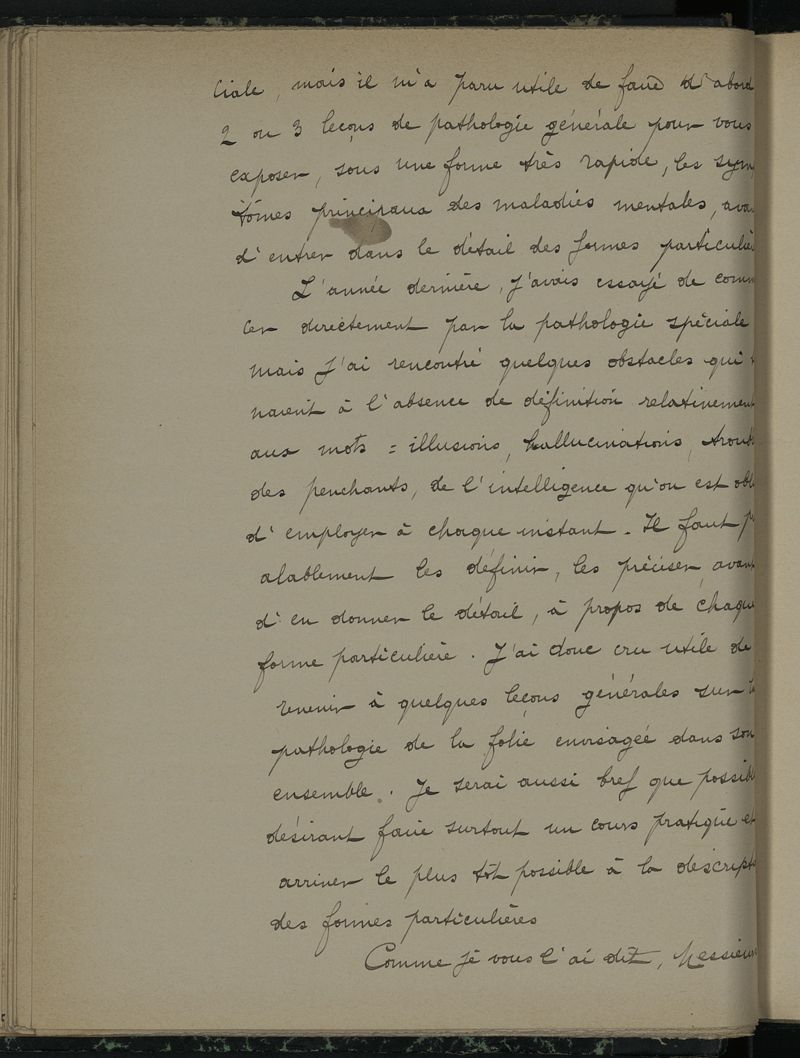 ciale, mais il m'a paru utile de faire d'abord
2 ou 3 leçons de pathologie générale pour vous
exposer, sous une forme très rapide, les sym
tômes principaux des maladies mentales, ava
d'entrer dans le détail des formes particuliè
L'année dernière, j'avais essayé de comm
cer directement par la pathologie spéciale
mais j'ai rencontré quelques obstacles qui
naient à l'absence de définition relativement
aux mots = illusions, hallucinations, troub
des penchants, de l'intelligence qu'on est obl
d'employer à chaque instant. Il faut p
alablement les définir, les préciser avant
d'en donner le détail, à propos de chaque
forme particulière. J'ai donc cru utile de
revenir à quelques leçons générales sur
pathologie de la folie envisagée dans son
ensemble. Je serai aussi bref que possib
désirant faire surtout un cours pratique et
arriver le plus tôt possible à la descript
des formes particulières
Comme je vous l'ai dit, Messieurs